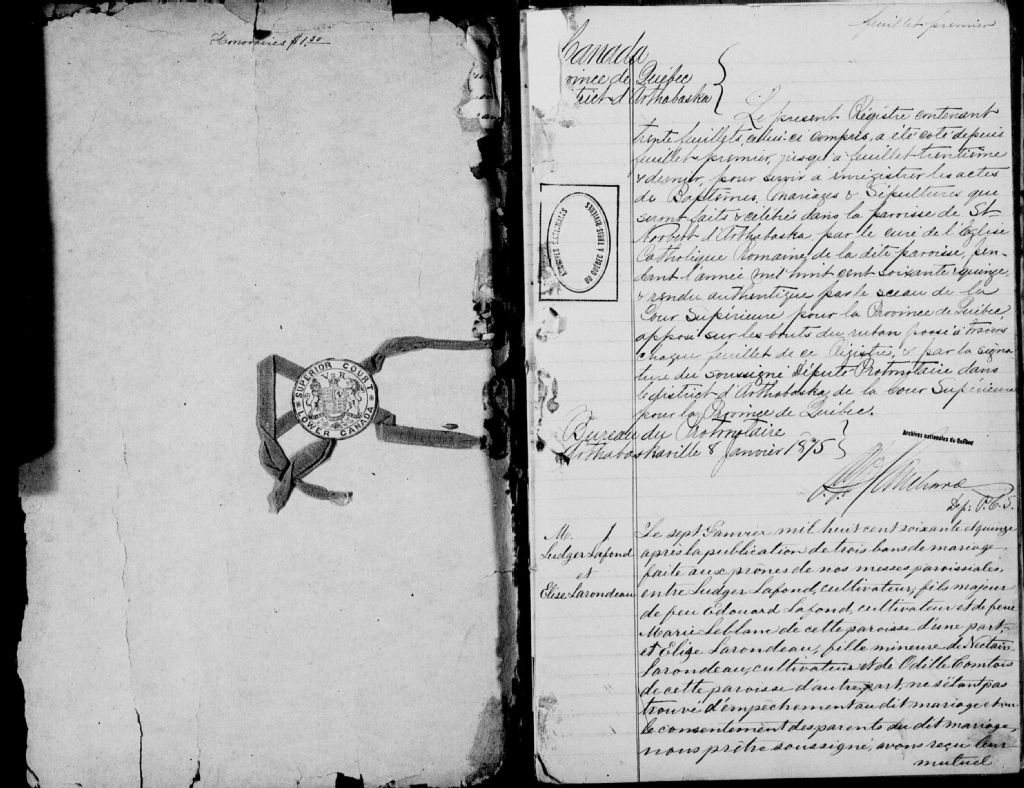 Honoraires $1,50
SUPERIOR COURT
V R
LOWER CANADA
feuillet premier
Canada
vince de Québec
trict d'Arthabaska
Le présent Régistre contenant
trente feuillets, celui-ci compris, a été coté depuis
feuillet premier, jusqu'à feuillet trentième
& dernier, pour servir à enrégistrer les actes
de Baptêmes, Mariages & Sépultures que
seront faits & célébrés dans la paroisse de St
Norbert d'Arthabaska, par le curé de l'Eglise
Catholique Romaine de la dite paroisse, pen-
dant l'année mil huit cent soixante & quinze,
& rendu authentique par le sceau de la
Cour Supérieure pour la Province de Québec,
apposé sur les bouts du ruban passé à travers
chaque feuillet de ce Régistre, & par la signa
ture du soussigné Député-Protonotaire dans
le district d'Arthabaska, de la Cour Supérieure
pour la Province de Québec.
Bureau du Protonotaire
Arthabaskaville 8 Janvier 1875
ARCHIVES NATIONALES
DU QUÉBEC À TROIS-RIVIÈRES
Archives nationales du Québec
Dep: P.C.S.
M. 1
Ludger Lafond
et
Elise Larondeau
Le sept Janvier mil huit cent soixante et quinze
après la publication de trois bans de mariage
faite aux prônes de nos messes paroissiales
entre Ludger Lafond, cultivateur, fils majeur
de feu Edouard Lafond, cultivateur et de feue
Marie Leblanc de cette paroisse d'une part,
et Elise Larondeau, fille mineure de Nectaire
Larondeau, cultivateur et de Odille Comtois
de cette paroisse d'autre part, ne s'étant pas
trouvé d'empechement au dit mariage et vu
le consentement des parents du dit mariage,
nous prêtre soussigné, avons reçu leur
mutuel